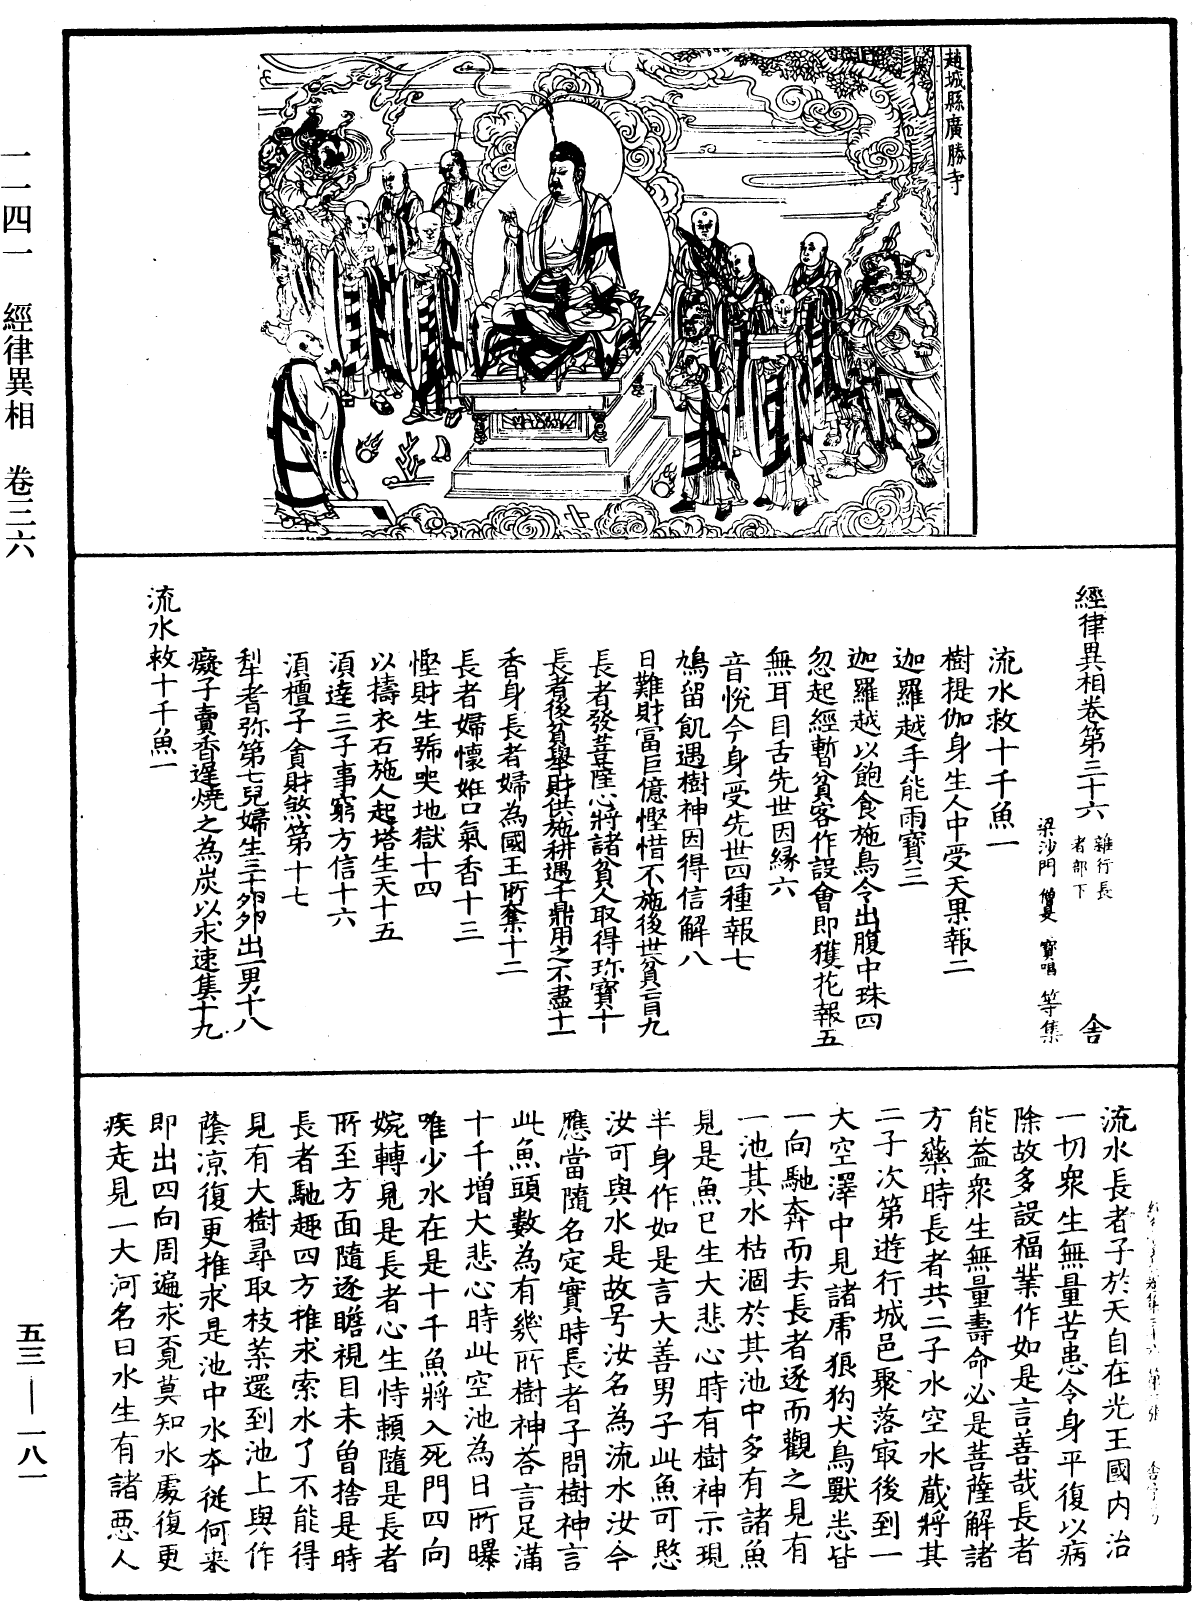 一一四一　經律異相　卷三六
趙城縣廣勝寺
經律異相卷第三十六 雜行長者部下 舍
梁沙門僧旻寶唱等集
流水救十千魚一
樹提伽身生人中受天果報二
迦羅越手能雨寶三
迦羅越以飽食施鳥令出腹中珠四
忽起經暫貧客作設會即獲花報五
無耳目舌先世因緣六
音悅今身受先世四種報七
鳩留飢遇樹神因得信解八
日難財富巨億慳惜不施後世貧盲九
長者發菩薩心將諸貧人取得珎寶十
長者後貧舉財供施耕遇千鼎用之不盡十一
香身長者婦為國王所奪十二
長者婦懷妊口氣香十三
慳財生號哭地獄十四
以擣衣石施人起塔生天十五
須達三子事窮方信十六
須檀子貪財煞第十七
犁耆弥第七兒婦生三十卵卵出一男十八
癡子賣香遲燒之為炭以求速集十九
流水救十千魚一
流水長者子於天自在光王國內治
一切衆生無量苦患令身平復以病
除故多設福業作如是言善哉長者
能益衆生無量壽命必是菩薩解諸
方藥時長者共二子水空水藏將其
二子次第遊行城邑聚落㝡後到一
大空澤中見諸虎狼狗犬鳥獸悉皆
一向馳奔而去長者逐而觀之見有
一池其水枯涸於其池中多有諸魚
見是魚已生大悲心時有樹神示現
半身作如是言大善男子此魚可愍
汝可與水是故号汝名為流水汝今
應當隨名定實時長者子問樹神言
此魚頭數為有幾所樹神荅言足滿
十千增大悲心時此空池為日所曝
唯少水在是十千魚將入死門四向
婉轉見是長者心生恃賴隨是長者
所至方面隨逐瞻視目未曾捨是時
長者馳趣四方推求索水了不能得
見有大樹尋取枝葉還到池上與作
蔭涼復更推求是池中水夲從何来
即出四向周遍求覓莫知水處復更
疾走見一大河名曰水生有諸惡人
五三—一八一